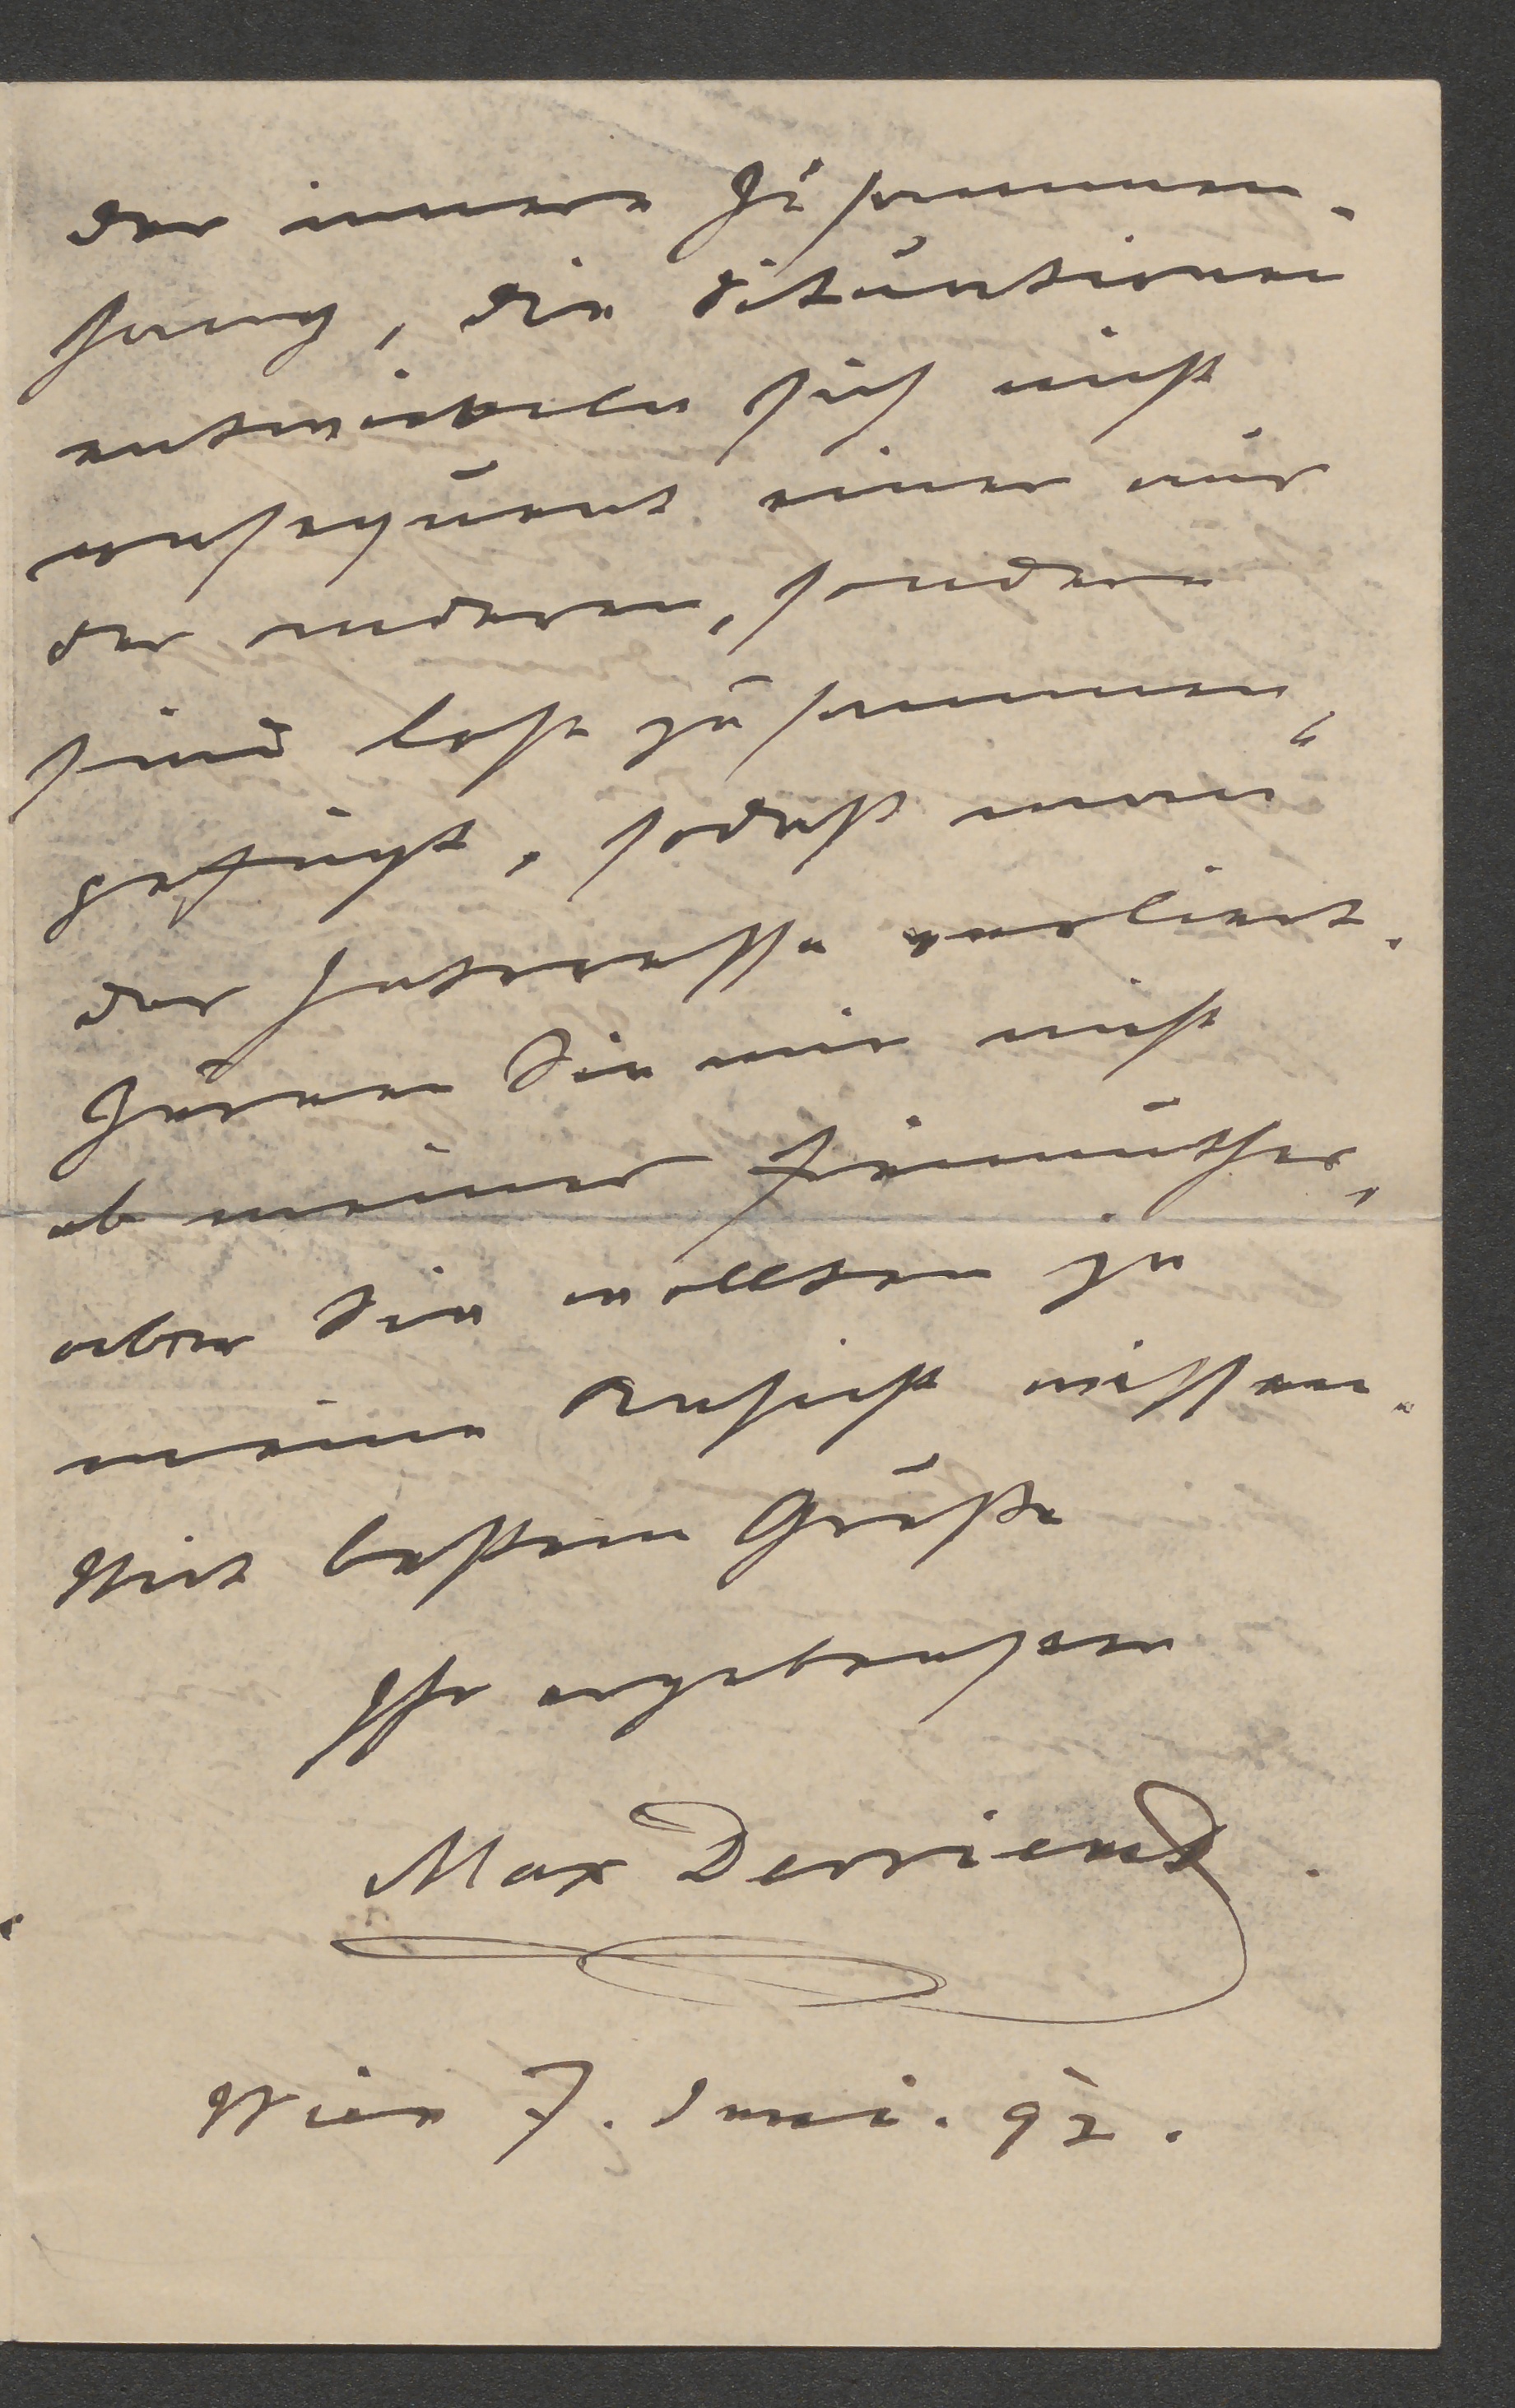 der innere Zusammen-
hang, die Situationen
entwickeln sich nicht
consequent einer aus
der anderen, sondern
sind lose zusammen
gefügt, sodaß man
das Interesse verliert.
Zürnen Sie mir nicht
ob meiner Freimuthes,
aber Sie wollten ja
meine Ansicht wissen.
Mit bestem Gruße
Ihr ergebenster
Max Devrient.
Wien 7. Juni. 92.